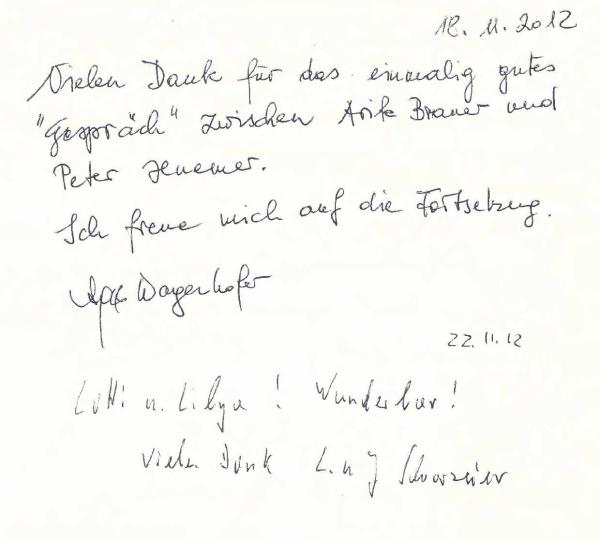 18. 11. 2012
Vielen Dank für das einmalig gutes
"Gespräch" zwischen Arik Brauer und
Peter
Ich freue mich auf die Fortsetzung.
Wagenhofer
22. 11. 12
Lotti u. Lilya ! Wunderbar!
Vielen Dank L. u J